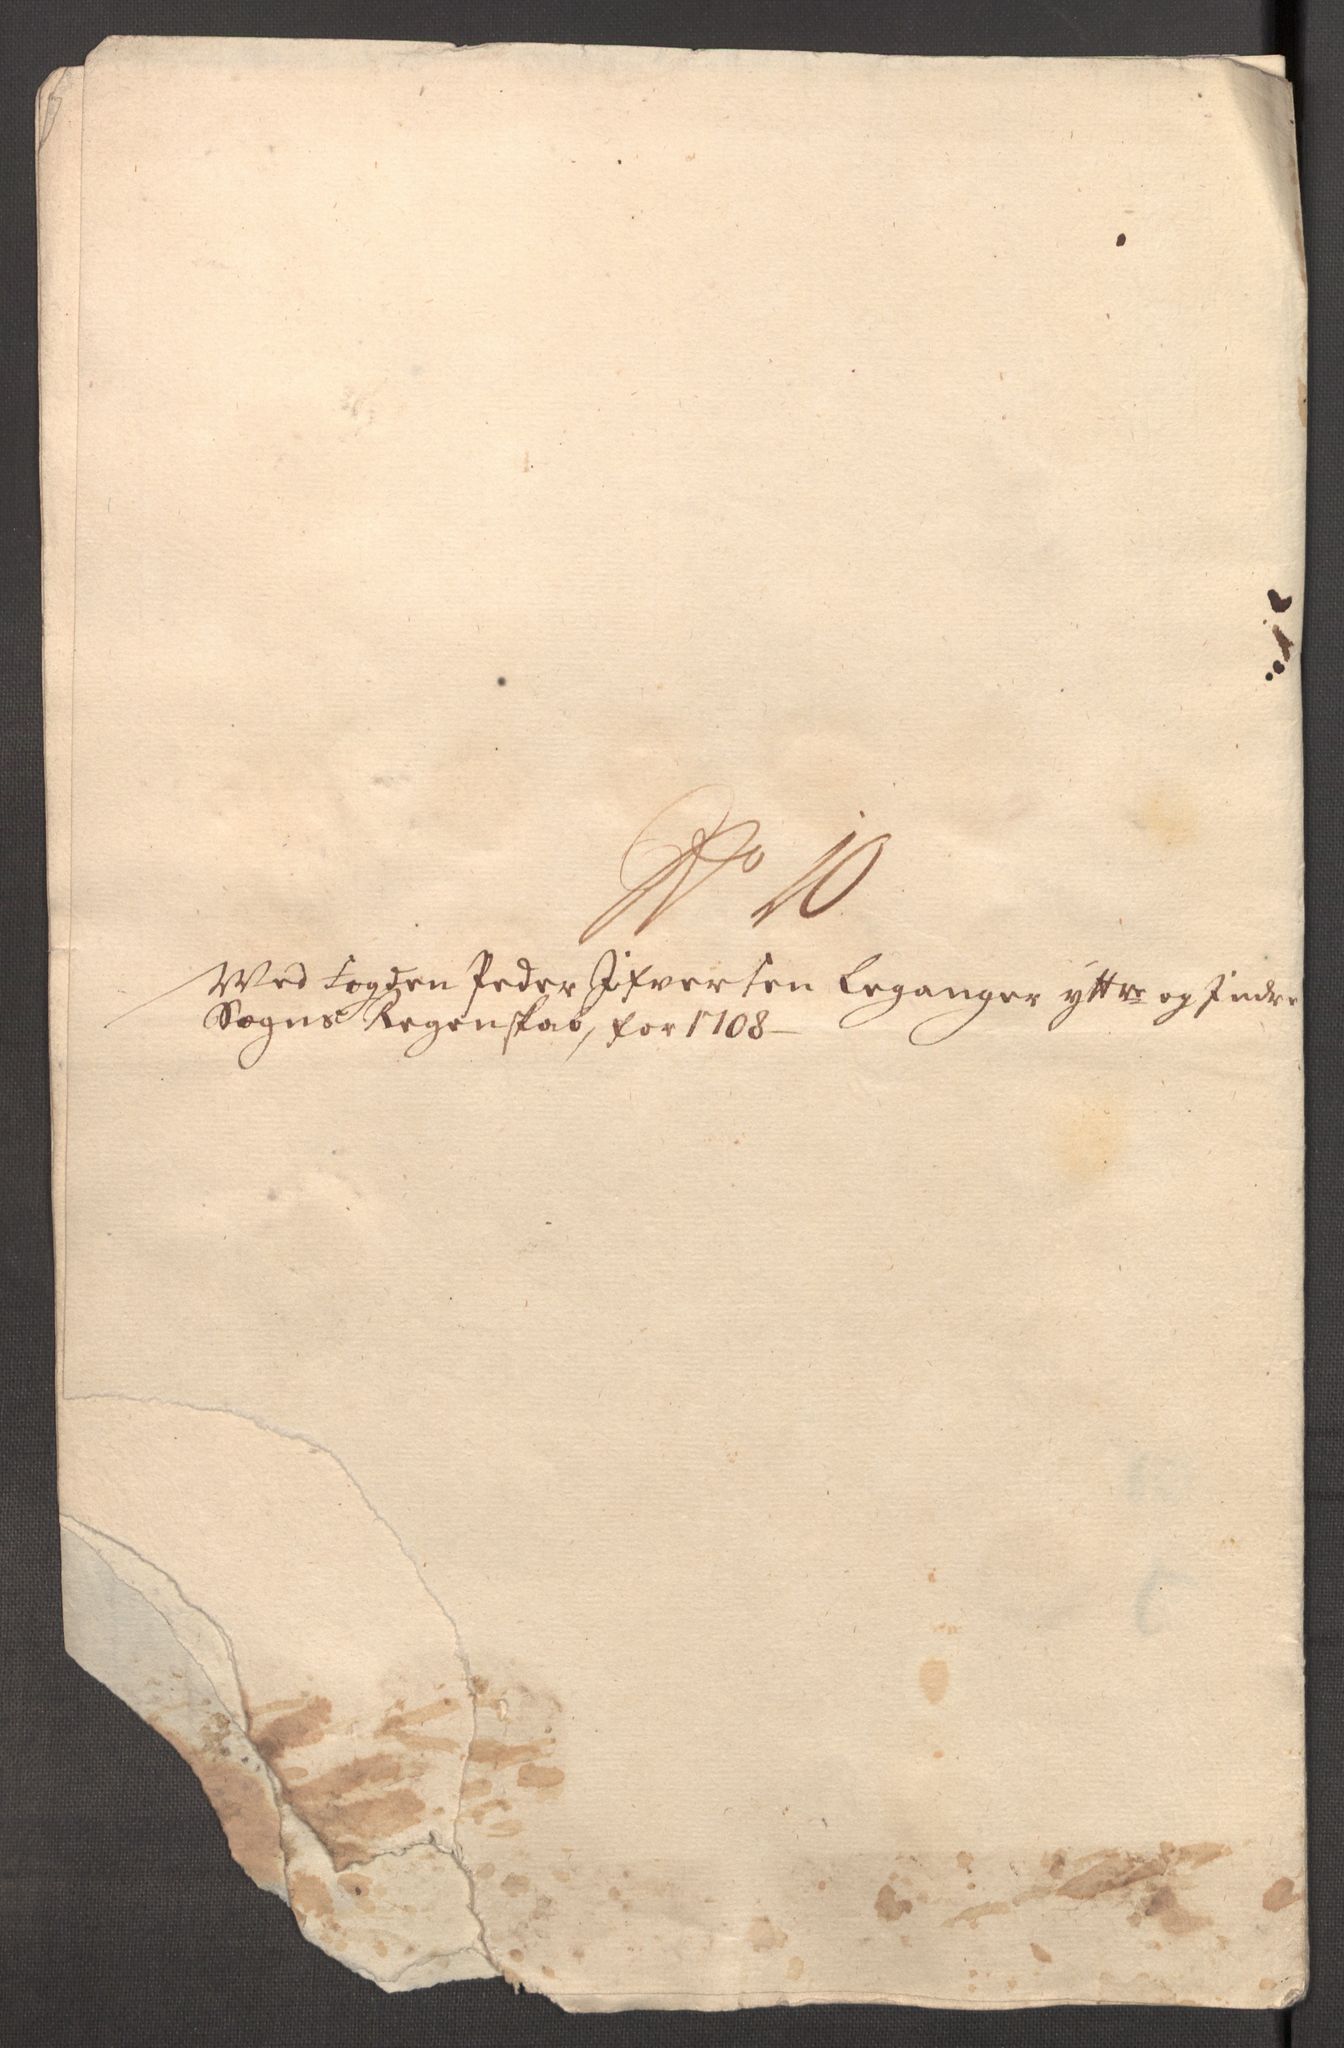 No 10
Wed Fogden Peder Jifversen Leganger yttre og Indre
Sogns Regenskab, for 1708